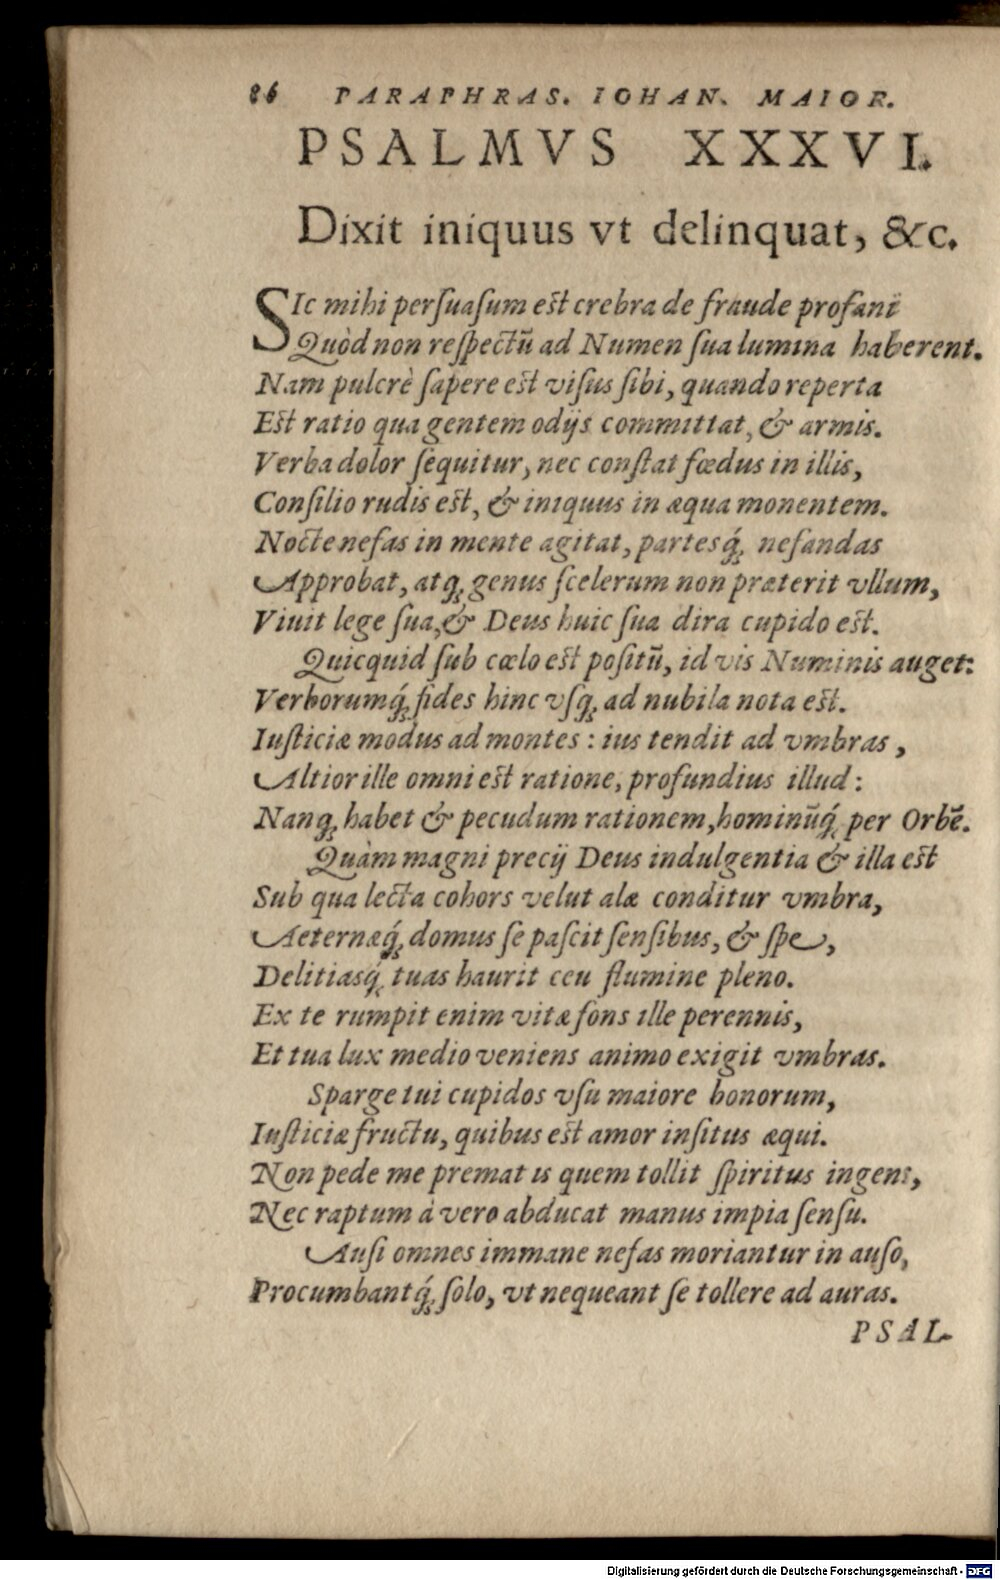 86 PARAPHRAS. IOHAN. MAIOR.
PSALMVS XXXVI.
Dixit iniquus vt delinquat, &c.
SIc mihi perſuaſum est crebra de fraude profani
Quòd non reſpectū ad Numen ſua lumina haberent.
Nam pulcrè ſapere est viſus ſibi, quando reperta
Est ratio qua gentem odijs committat, & armis.
Verba dolor ſequitur, nec conſtat fœdus in illis,
Conſilio rudis est, & iniquus in æqua monentem.
Nocte nefas in mente agitat, partesq́; nefandas
Approbat, atq; genus ſcelerum non præterit vllum,
Viuit lege ſua, & Deus huic ſua dira cupido est.
Quicquid ſub cœlo est poſitū, id vis Numinis auget:
Verborumq́; fides hinc vſq; ad nubila nota est.
Iuſticiæ modus ad montes : ius tendit ad vmbras ,
Altior ille omni est ratione, profundius illud :
Nanq; habet & pecudum rationem, hominūq́; per Orbē.
Quàm magni precij Deus indulgentia & illa est
Sub qua lecta cohors velut alæ conditur vmbra,
Aeternæq́; domus ſe paſcit ſenſibus, & ſpe,
Delitiasq́; tuas haurit ceu flumine pleno.
Ex te rumpit enim vitæ fons ille perennis,
Et tua lux medio veniens animo exigit vmbras.
Sparge tui cupidos vſu maiore bonorum,
Iuſticiæ fructu, quibus est amor inſitus æqui.
Non pede me premat is quem tollit ſpiritus ingens,
Nec raptum à vero abducat manus impia ſenſu.
Auſi omnes immane nefas moriantur in auſo,
Procumbantq́; ſolo, vt nequeant ſe tollere ad auras.
PSAL-
Digitalisierung gefördert durch die Deutsche Forschungsgemeinschaft - DFG